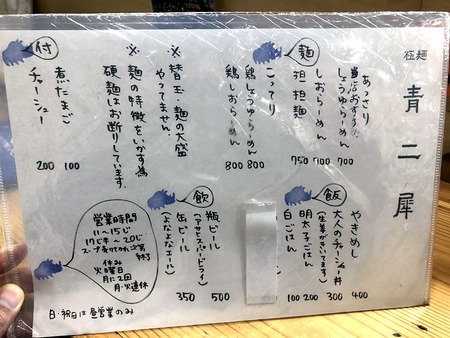 極麺
青二犀
麺
あっさり
当店おすすめ
しょうゆらーめん 700
しおらーめん 700
担担麺 750
こってり
鶏しょうゆらーめん 800
鶏しおらーめん 800
※替玉・麺の大盛
やってません。
※麺の特徴をいかす為
硬麺はお断りしています。
付
煮たまご 100
チャーシュー 200
飯
やきめし 400
大人のチャーシュー丼 300
(生姜がきいてます)
明太子ごはん 200
白ごはん 100
飲
瓶ビール 500
(アサヒスーパードライ)
缶ビール 350
(よなよなエール)
営業時間
11〜15じ
17じ半〜20じ
スープ売り切れ次第
終了
休み
火曜日
月に2回
月・火連休
日・祝日は昼営業のみ